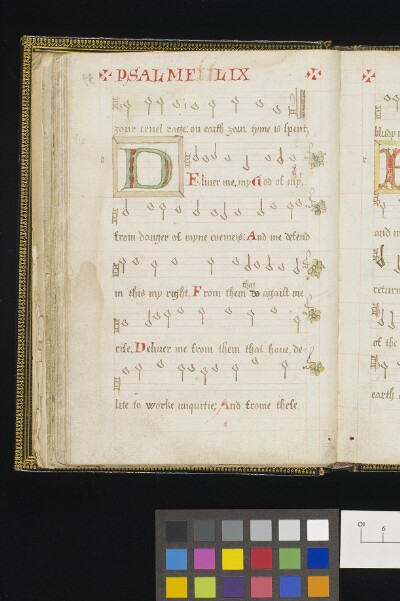 ✠ PSALME LIX ✠
your cruel rage: on earth your tyme is spent,
DEliver me, my God of my,
from danger of myne enemeis: And me defend
in this my right. From them that do against me
rise, Deliver me from them that have, de-
lite to worke iniquitie; And frome these
bludy
and m
return
of the
earth